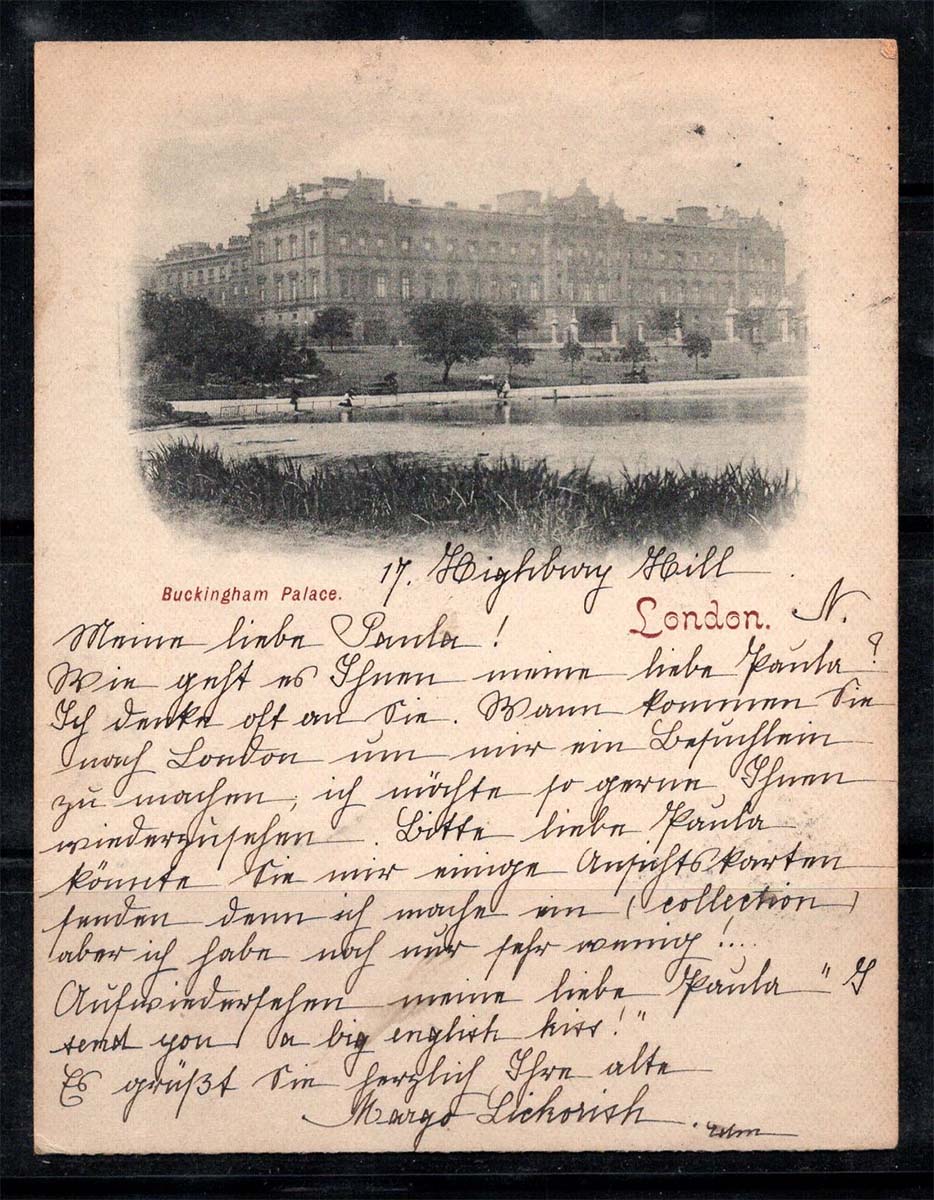 17. Highbury Hill
Buckingham Palace.
London. N.
Meine liebe Paula!
Wie geht es Ihnen meine liebe Paula?
Ich denke oft an Sie. Wann kommen Sie
nach London um mir ein Besuchlein
zu machen, ich möchte so gerne Ihnen
wiederzusehen. Bitte liebe Paula
könnte Sie mir einige Ansichtskarten
senden denn ich mache ein (collection)
aber ich habe noch nur sehr wenig!...
Aufwiedersehen meine liebe Paula "I
send you a big english kiss!"
Es grüßt Sie herzlich Ihre alte
Margo Lickorish.